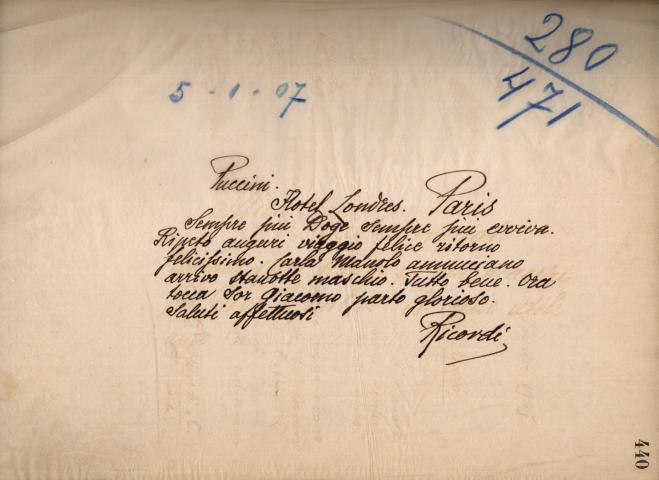 280
471
5 - 1 - 07
Puccini.
Hotel Londres. Paris
Sempre più Doge sempre più evviva.
Ripeto auguri viaggio felice ritorno
felicissimo. Carla Manolo annunciano
arrivo stanotte maschio. Tutto bene. Ora
tocca Sor Giacomo parto glorioso.
Saluti affettuosi
Ricordi
440